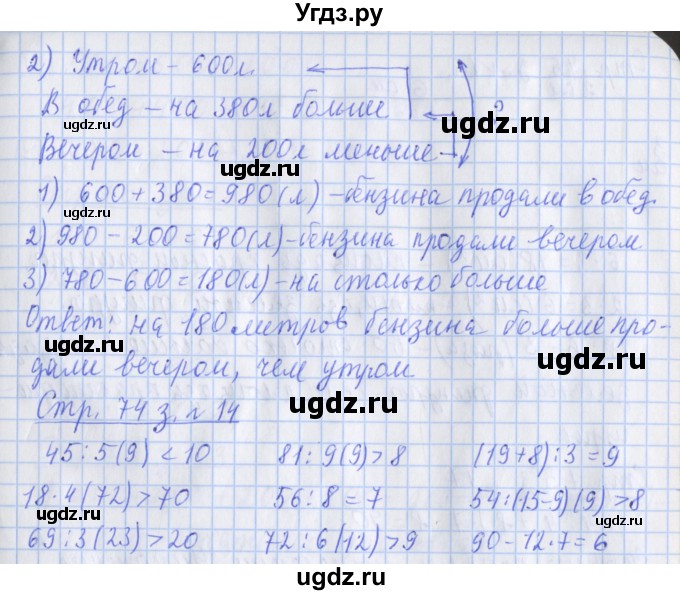 Угдз.ру
2) Утром – 600л.
В обед – на 380л больше
?
ugdz.ru ugdz.ru
Вечером – на 200л меньше
1) 600 + 380 = 980(л) – бензина продали в обед.
ugdz.ru
2) 980 – 200 = 780(л) – бензина продали вечером
ugdz.ru ugdz.ru
3) 780 – 600 = 180(л) – на столько больше
Ответ: на 180 литров бензина больше про-
ugdz.ru ugdz.ru
дали вечером, чем утром
ugdz.ru
Стр. 74 з. № 14
ugdz.ru
45 : 5 (9) < 10 81 : 9 (9) > 8 (19 + 8) : 3 = 9
ugdz.ru
18 · 4 (72) > 70 56 : 8 = 7 54 : (15 – 9) (9) > 8
ugdz.ru ugdz.ru
69 : 3 (23) > 20 72 : 6 (12) > 9 90 – 12 · 7 = 6
ugdz.ru
ugdz.ru